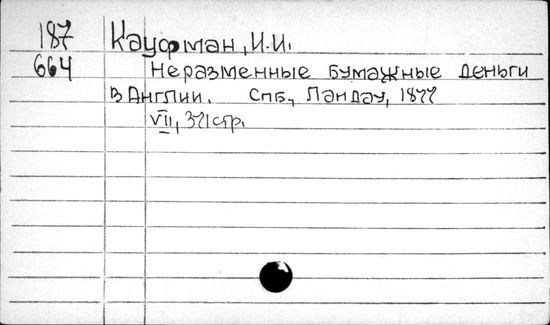 187 Кауфман, И.И.
664 Неразменные бумажные деньги
в Англии. Спб., Ландау, 1877
VII, 371 стр.